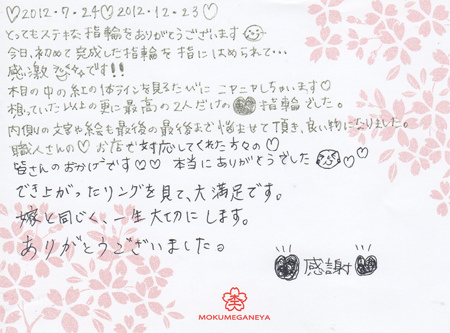 ♡2012.7.24♡2012.12.23♡
とってもステキな指輪をありがとうございます
今日、初めて完成した指輪を指にはめられて…
感激です!!
木目の中の紅の1本ラインを見るたびにニヤニヤしちゃいます♡
想っていた以上の更に最高の2人だけの指輪でした。
内側の文字や絵も最後の最後まで悩ませて頂き、良い物になりました。
職人さんの♡お店で対応してくれた方々の♡
皆さんのおかげです♡♡本当にありがとうでした♡
でき上がったリングを見て、大満足です。
嫁と同じく、一生大切にします。
ありがとうございました。
感謝
MOKUMEGANEYA